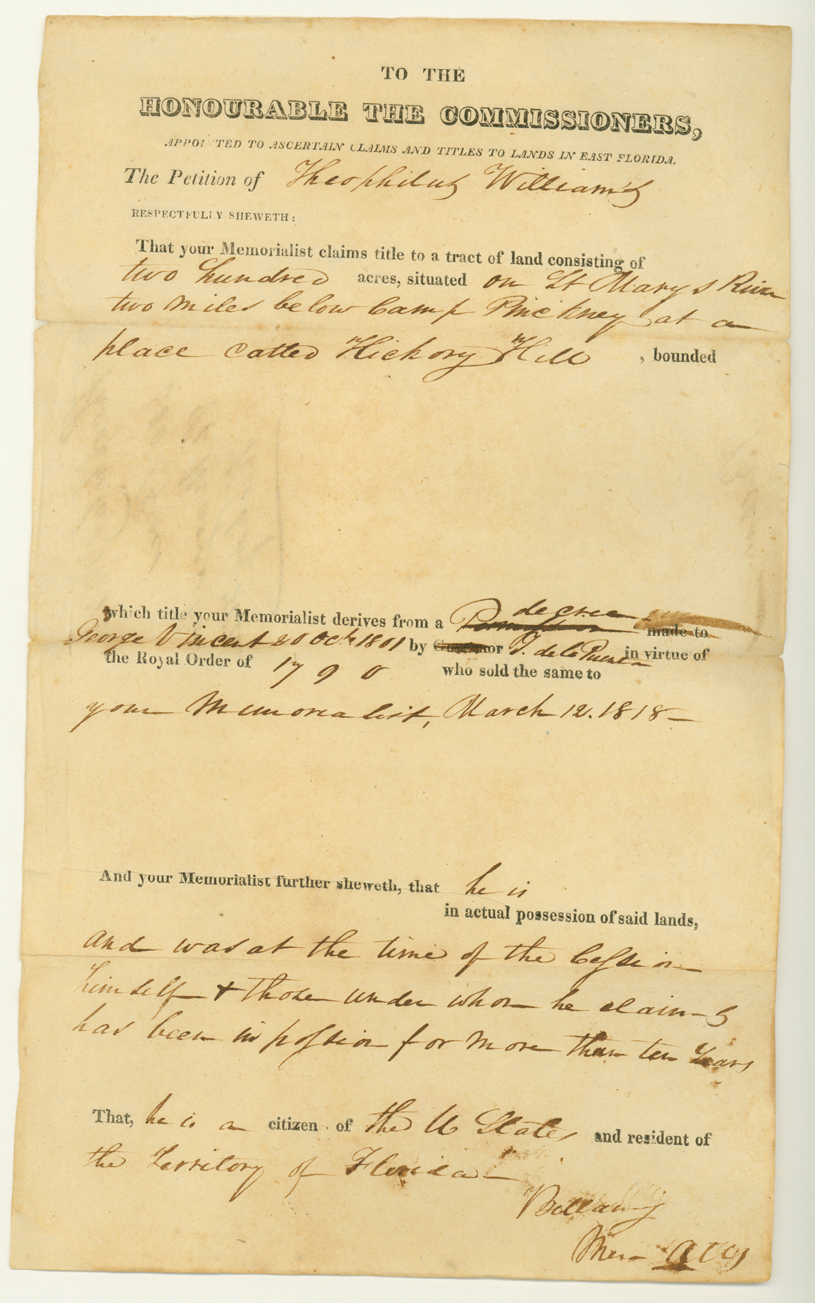 TO THE
HONOURABLE THE COMMISSIONERS,
APPOI TED TO ASCERTAIN CLAIMS AND TITLES TO LANDS IN EAST FLORIDA.
The Petition of Theophilus Williams
RESPECTFULLY SHEWETH:
That your Memorialist claims title to a tract of land consisting of
two hundred acres, situated on St Marys River
two miles below Camp Pinckney at a
place called Hickory Hill , bounded
decree
which title your Memorialist derives from a made to
George Vincent 20 Octr 1801 by or in virtue of
the Royal Order of 1790 who sold the same to
your Memorialist, March 12. 1818 —
And your Memorialist further sheweth, that he is
in actual possession of said lands,
and was at the time of the Cession
himself + those under whom he claims
has been in possion for more than ten Years
That, he is a citizen of the U States and resident of
the Territory of Florida —
Bellamy